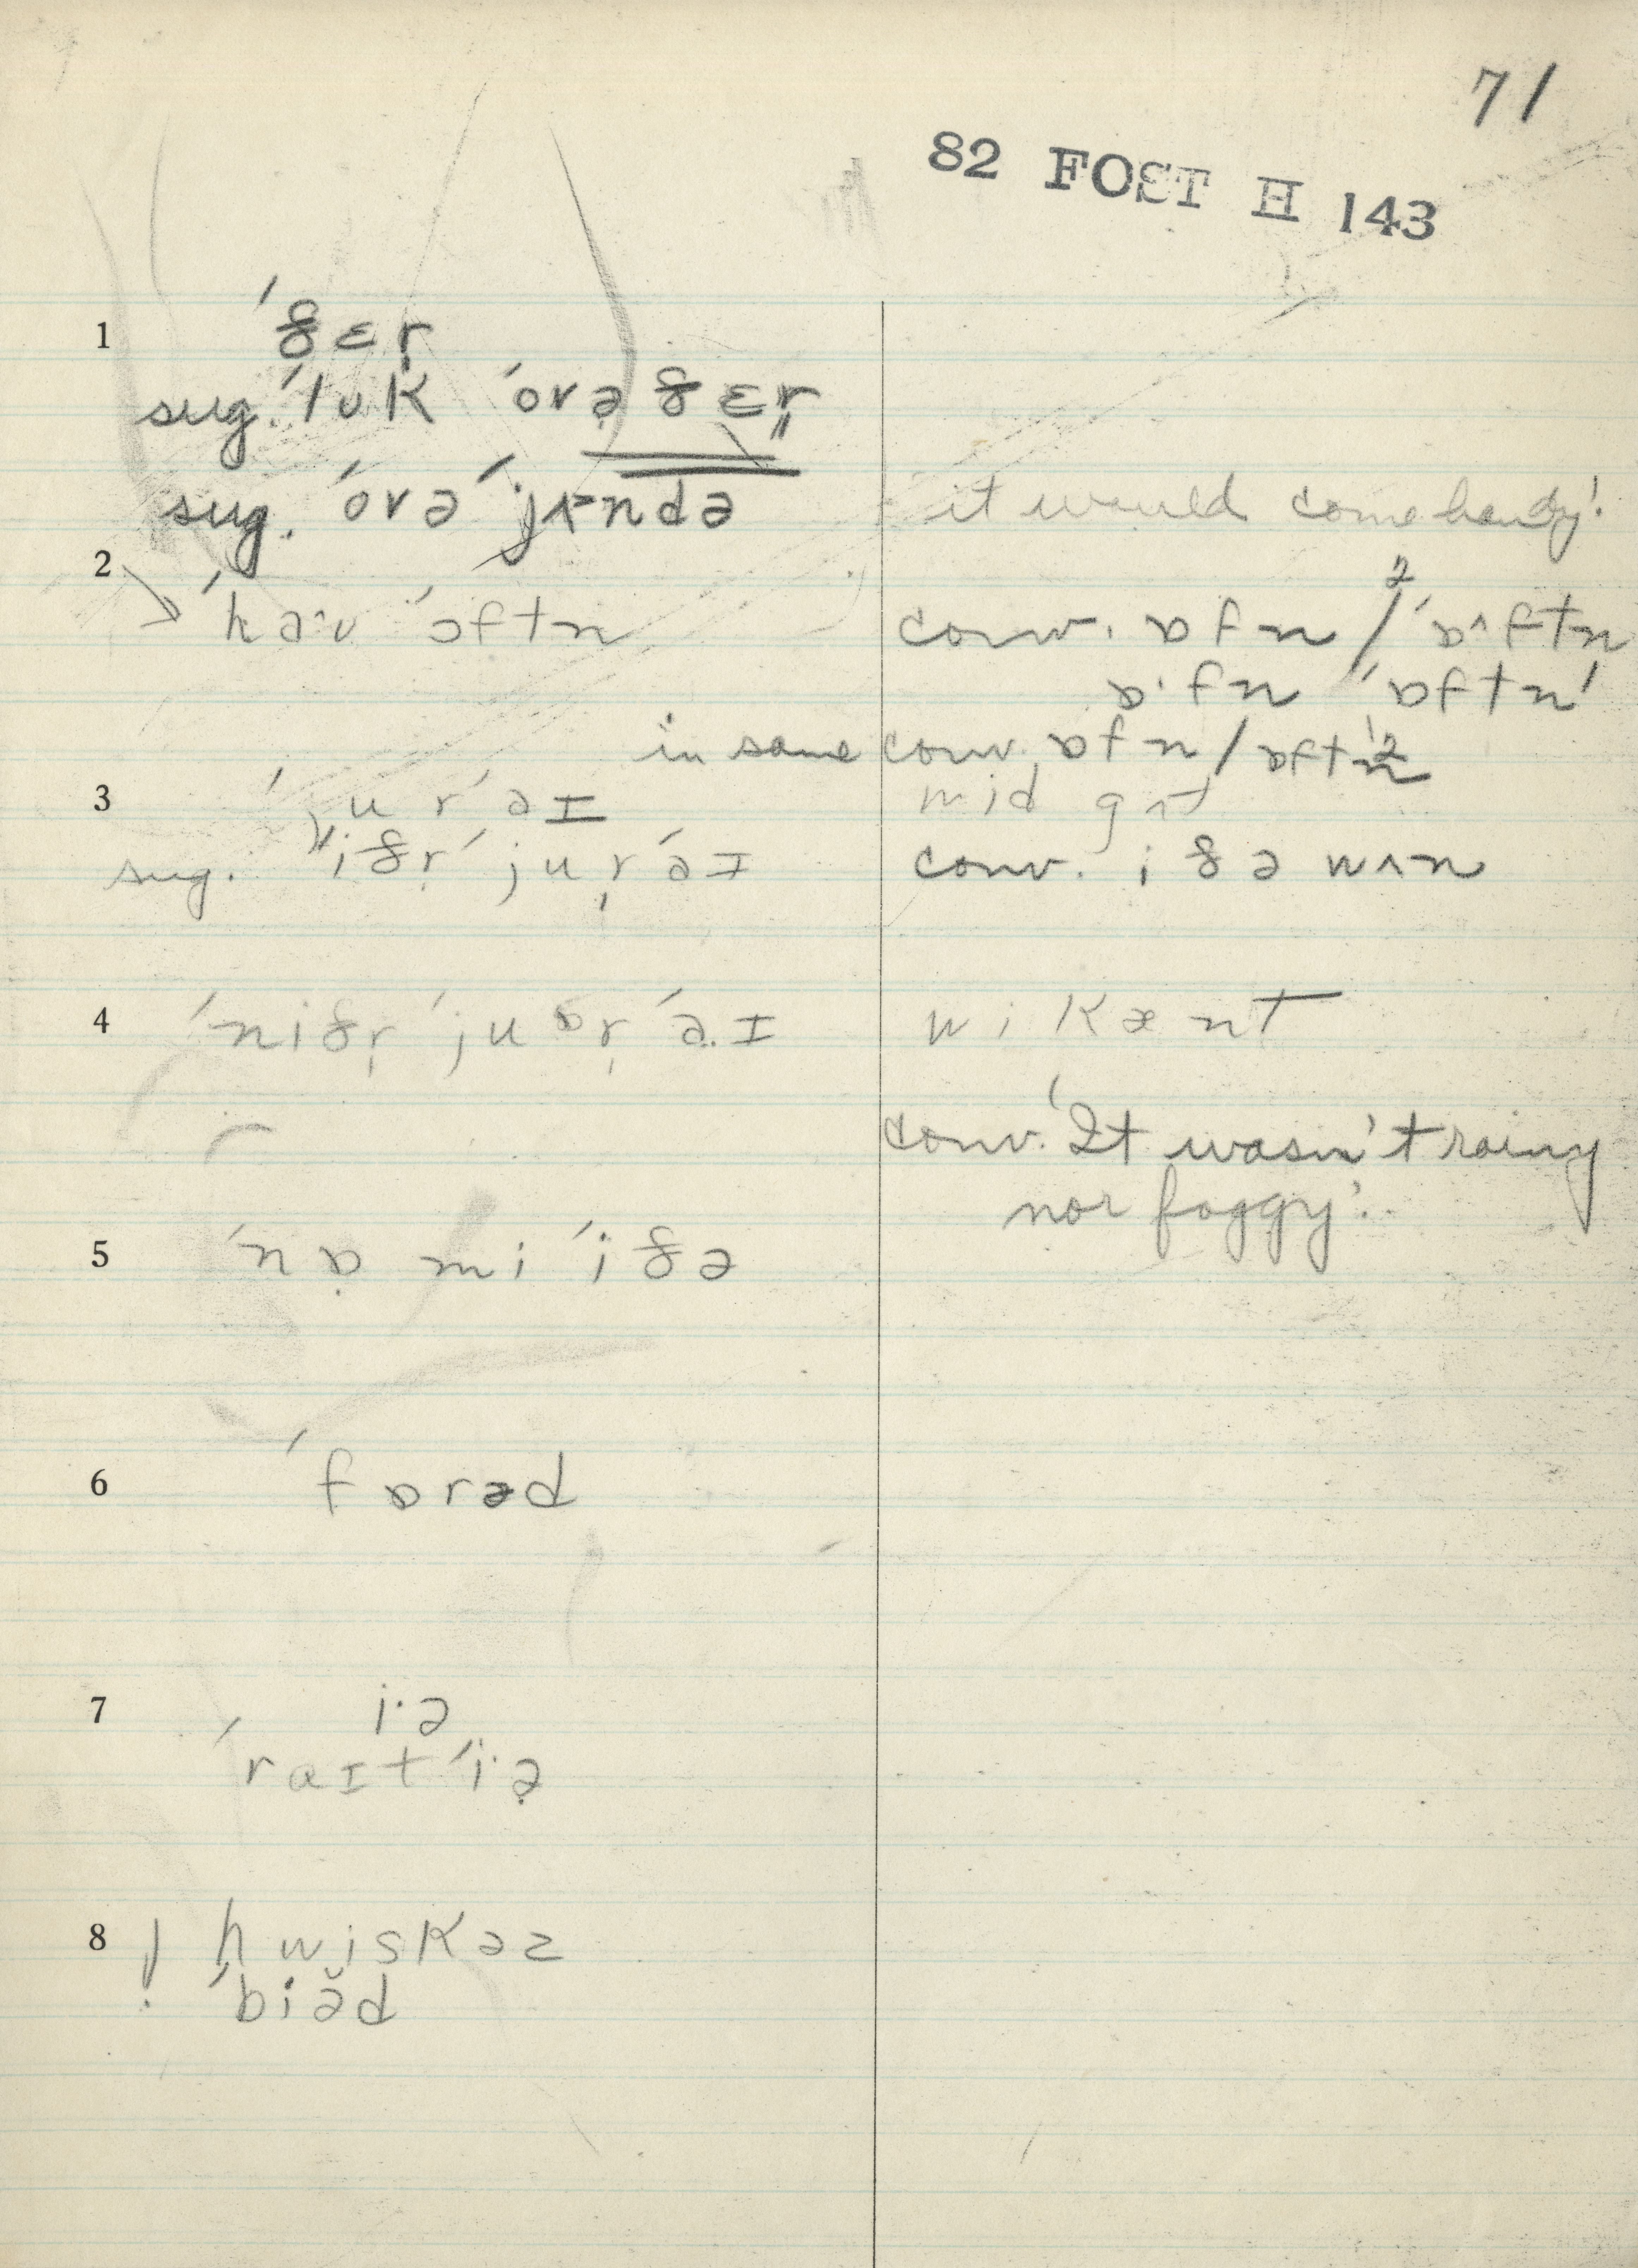 71
82 FOST H 143
1 ´ðɛr̩
sug. ´lʊk ´ovə ðɛr̩
sug. ´ovə ´jɛndə
'it would come handy!'
2 ´haˑʊ ´ɔftn
conv. ɒfn /² ´ɒ^ftn
ɒˑfn 'ɒftn'
in same conv. ɒfn / ɒftn²
3 ´ju r ´əɪ
mid gʌt
sug. ´iðr̩ ´jur̩ ´əɪ
conv. iðə wʌn
4 ´niðr̩ ´juɒr̩ ´ə.ɪ
wi kænt
conv. 'It wasn't rainy
nor foggy'.
5 ´nɒ̣ mi ´iðə
6 ´fɒrəd
7 iˑə
´raɪt ´iˑə̣
8 ! hwiskəz
´biə̆d